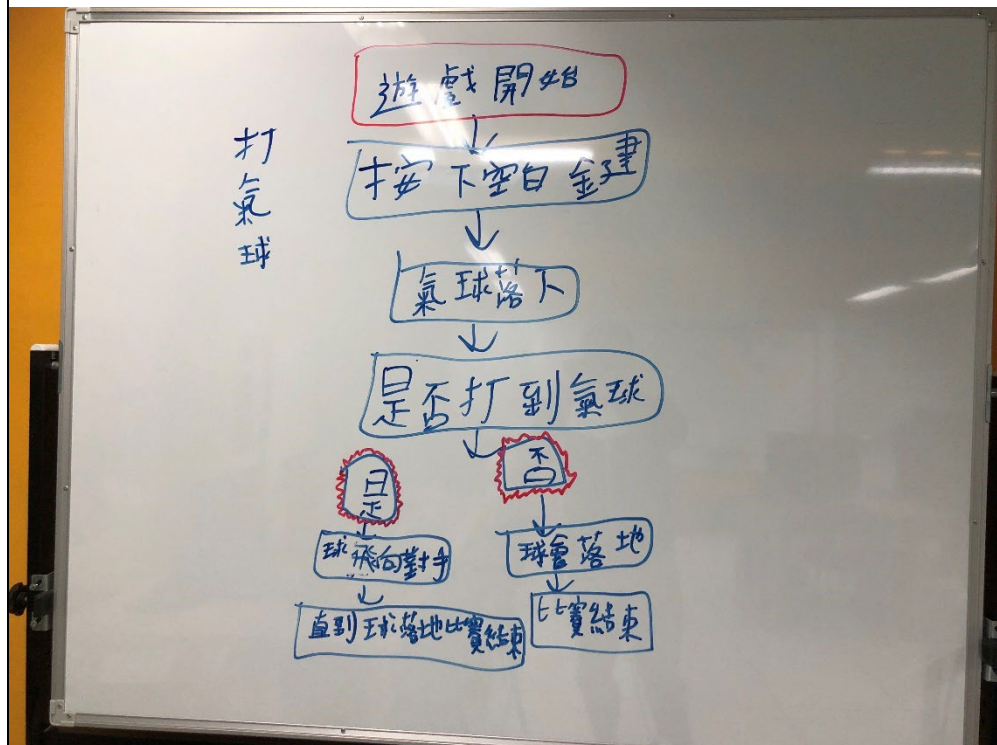 打氣球
遊戲開始
按下空白鍵
氣球落下
是否打到氣球
是
否
球飛向對手
球會落地
直到球落地比賽結束
比賽結束